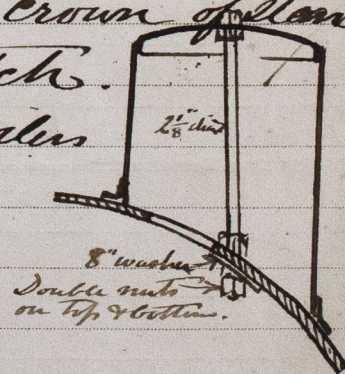 crown of
tch.
2 1/8" diar
8" washer
Double nuts
on top & bottom.